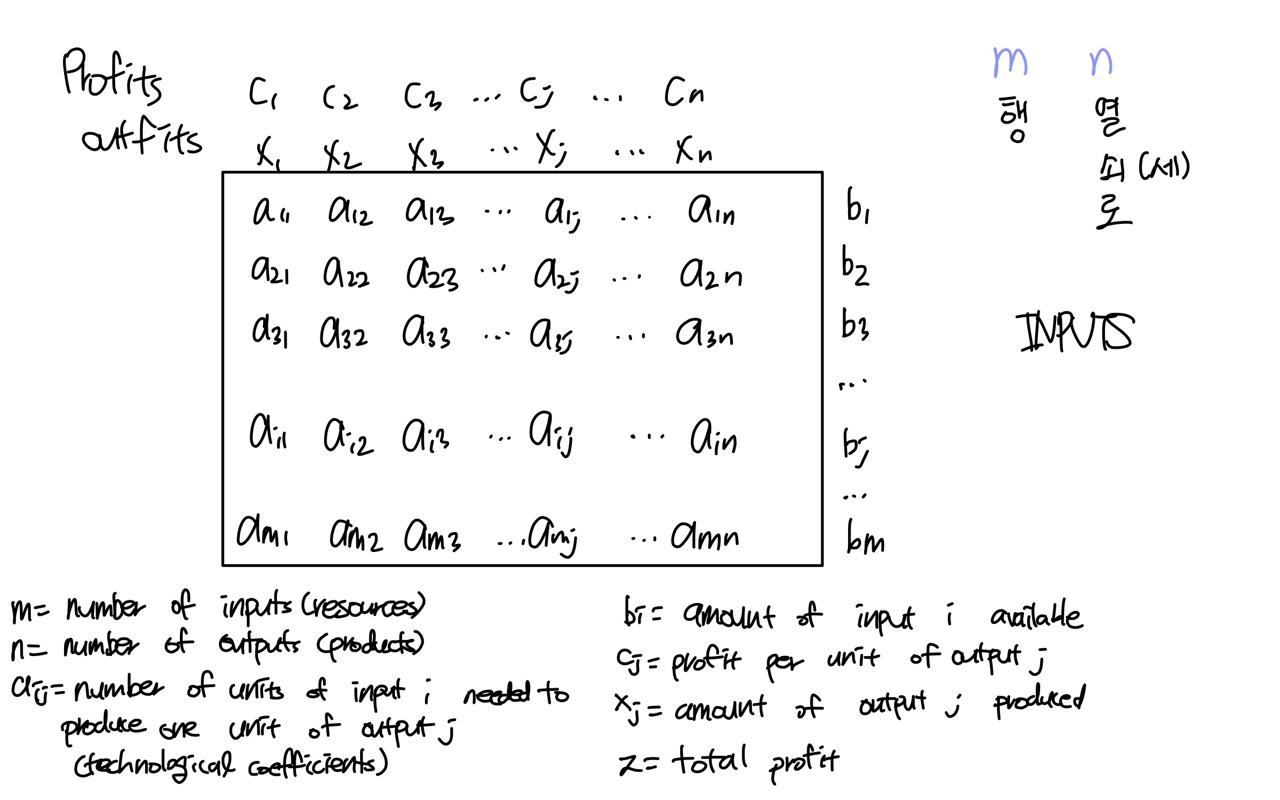 Profits C₁ C₂ C₃ ... Cⱼ ... Cn
outfits X₁ X₂ X₃ ... Xⱼ ... Xn
a₁₁ a₁₂ a₁₃ ... a₁ⱼ ... a₁n b₁
a₂₁ a₂₂ a₂₃ ... a₂ⱼ ... a₂n b₂
a₃₁ a₃₂ a₃₃ ... a₃ⱼ ... a₃n b₃
...
aᵢ₁ aᵢ₂ aᵢ₃ ... aᵢⱼ ... aᵢn bⱼ
...
am₁ am₂ am₃ ... amⱼ ... amn bm
m n
행 열
(세)
로
INPUTS
m= number of inputs (resources)
n= number of outputs (products)
aᵢⱼ= number of units of input i needed to
produce one unit of output j
(technological coefficients)
bᵢ= amount of input i available
cⱼ= profit per unit of output j
xⱼ= amount of output j produced
z= total profit